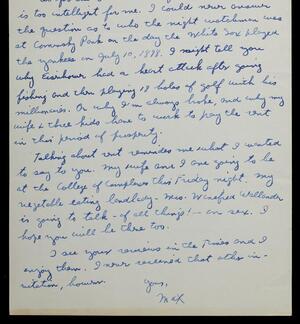 is too intelligent for me. I could never answer
the question as to who the night watchman was
at Comisky Park on the day the White Sox played
the Yankees on July 10, 1898. I might tell you
why Eisenhower had a heart attack after going
fishing and then playing 18 holes of golf with his
millionaires. Or why I'm always broke, and why my
wife & three kids have to work to pay the rent
in this period of prosperity.
Talking about rent reminds me what I wanted
to say to you. My wife and I are going to be
at the College of Complexes this Friday night. My
vegetable eating landlady - Mrs. Winefred
is going to talk - of all things! - on sex. I
hope you will be there too.
I see your remains in the Times and I
enjoy them. I never received that other in-
vitation, however.
Yours,
Max